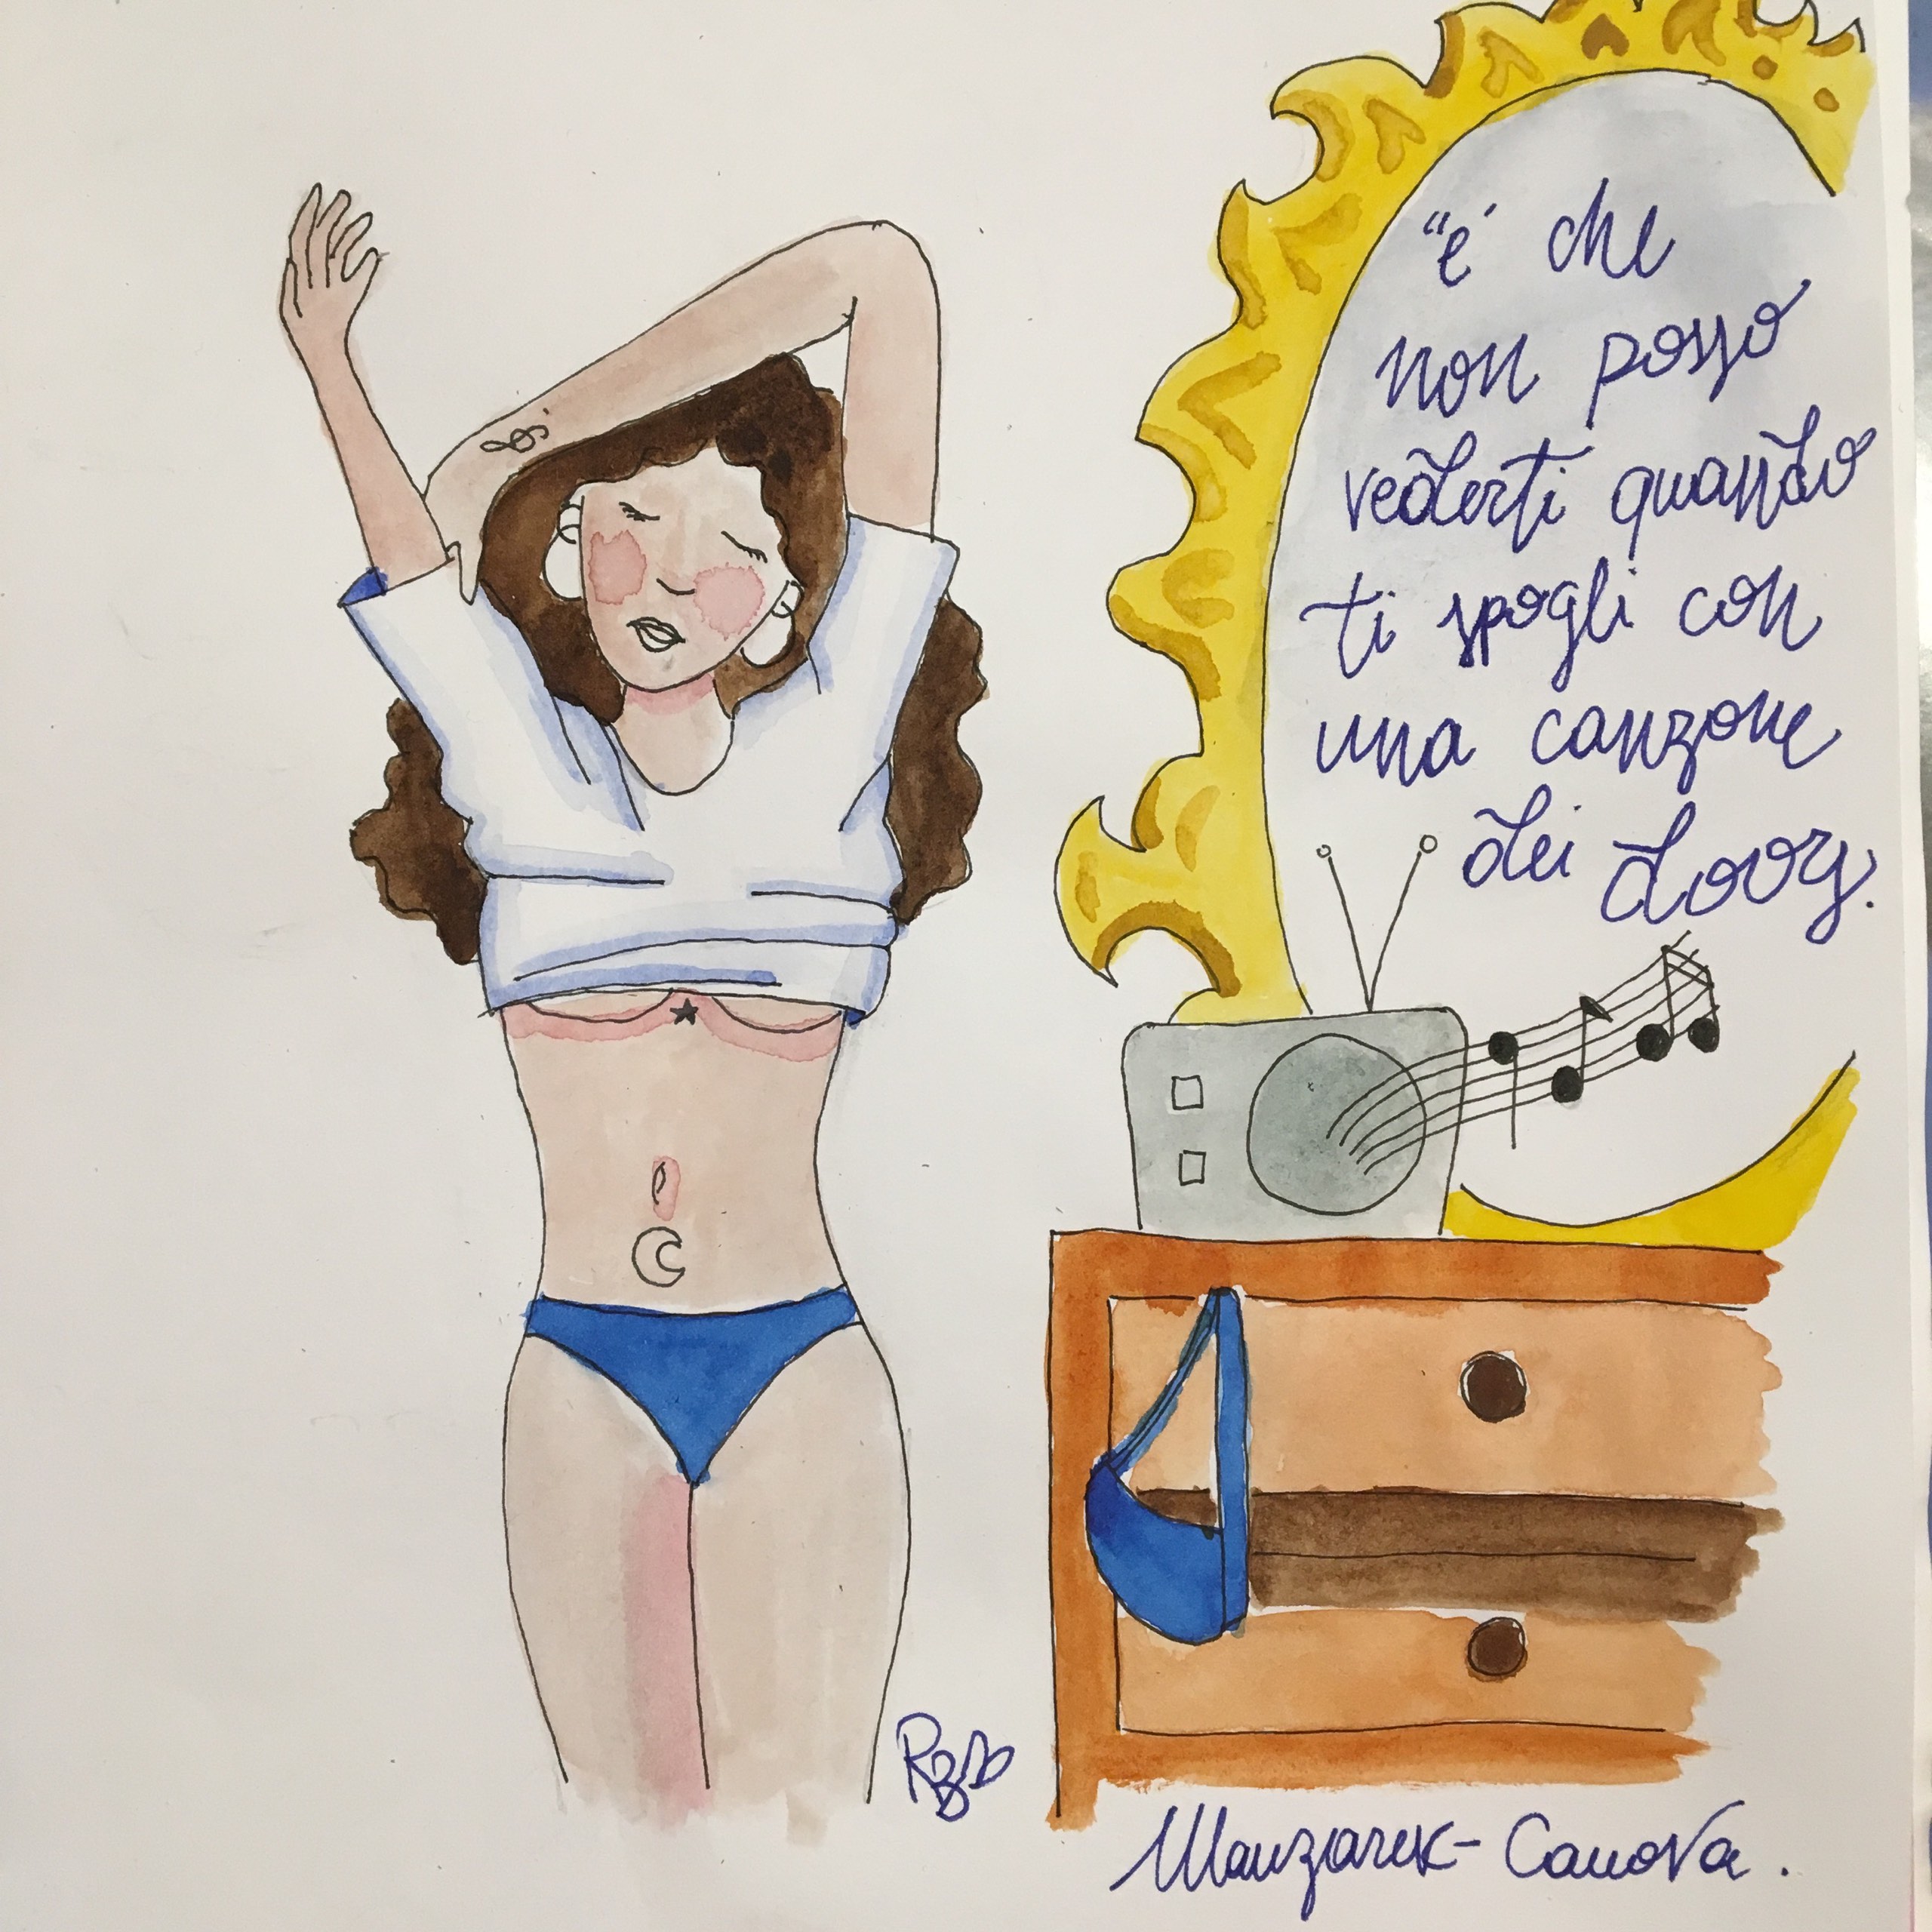 "é che
non posso
vederti quando
ti spogli con
una canzone
dei doors.
Manzarek - Canova.